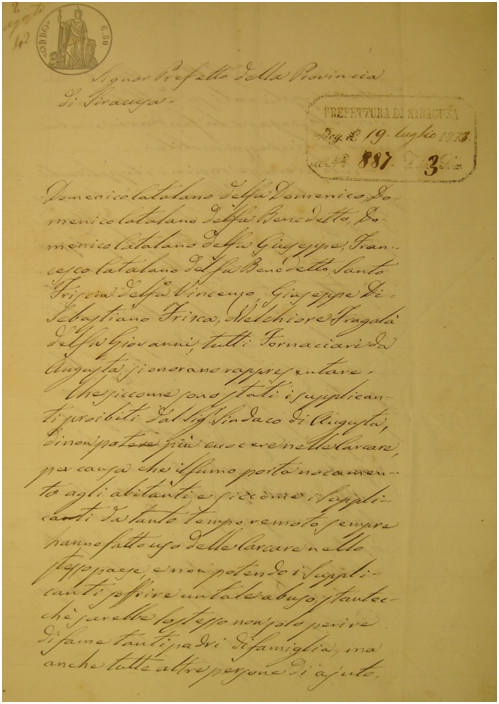 Signor Prefetto della Provincia
di Siracusa.
PREFETTURA DI SIRACUSA
19. luglio 1873.
887. 3
Domenico Catalano del fu Domenico, Do-
menico Catalano del fu Benedetto, Do-
menico Catalano del fu Giuseppe, Fran-
cesco Catalano del fu Benedetto, Santo
Triscia del fu Vincenzo, Giuseppe Di-
Sebastiano Frisca, Melchiore Fragalà
del fu Giovanni, tutti Fornaciari da
Augusta, si onorano rappresentare.
Che siccome sono stati i supplican-
ti proibiti dal Sig. Sindaco di Augusta,
di non potere più cuocere nelle Carcare,
per causa che il fumo porta nocumen-
to agli abitanti, e siccome i Suppli-
canti da tanto tempo remoto sempre
hanno fatto uso delle Carcare nello
stesso paese e non potendo i Suppli-
canti soffrire un tale abuso, stantec-
chè sarebbe lo stesso non solo perire
di fame tanti padri di famiglia, ma
anche tutte altre persone di ajuto,